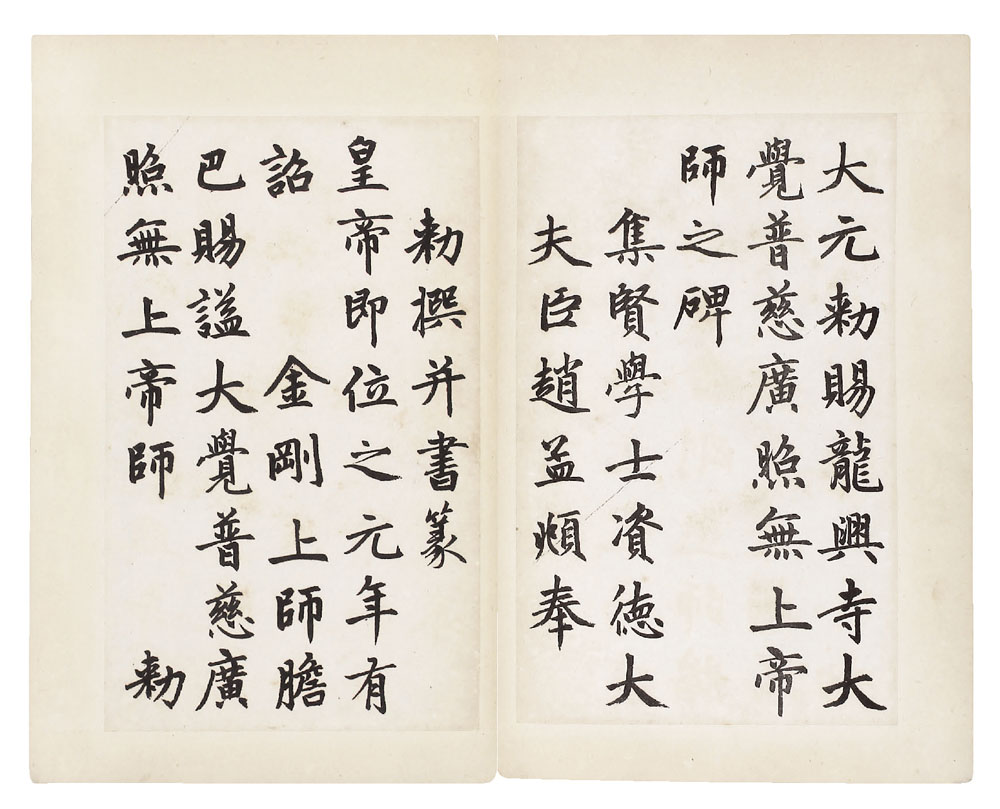 大元勅賜龍興寺大
覺普慈廣照無上帝
師之碑
集賢學士資德大
夫臣趙孟頫奉
勅撰并書篆
皇帝即位之元年有
詔金剛上師膽
巴賜謚大覺普慈廣
照無上帝師勅